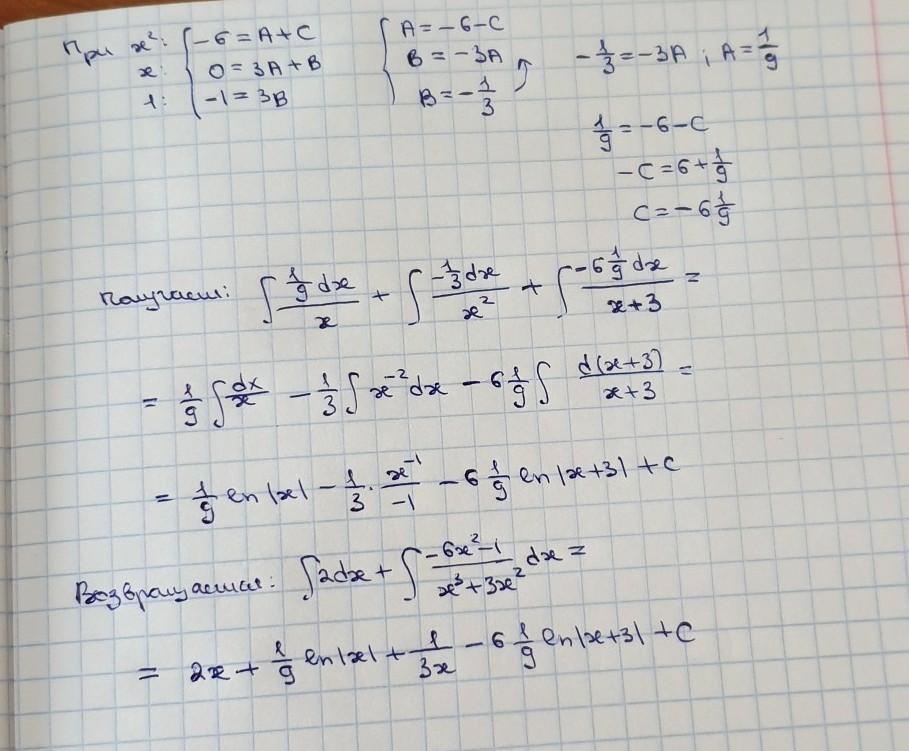 При x²: { -6 = A + C { A = -6 - C
x: 0 = 3A + B B = -3A -1/3 = -3A ; A = 1/9
1: -1 = 3B B = -1/3
1/9 = -6 - C
-C = 6 + 1/9
C = -6 1/9
Получаем: ∫ (1/9 dx)/x + ∫ (-1/3 dx)/x² + ∫ (-6 1/9 dx)/(x+3) =
= 1/9 ∫ dx/x - 1/3 ∫ x⁻² dx - 6 1/9 ∫ d(x+3)/(x+3) =
= 1/9 ln|x| - 1/3 · x⁻¹/-1 - 6 1/9 ln|x+3| + C
Возвращаемся: ∫ 2dx + ∫ (-6x² - 1)/(x³ + 3x²) dx =
= 2x + 1/9 ln|x| + 1/3x - 6 1/9 ln|x+3| + C